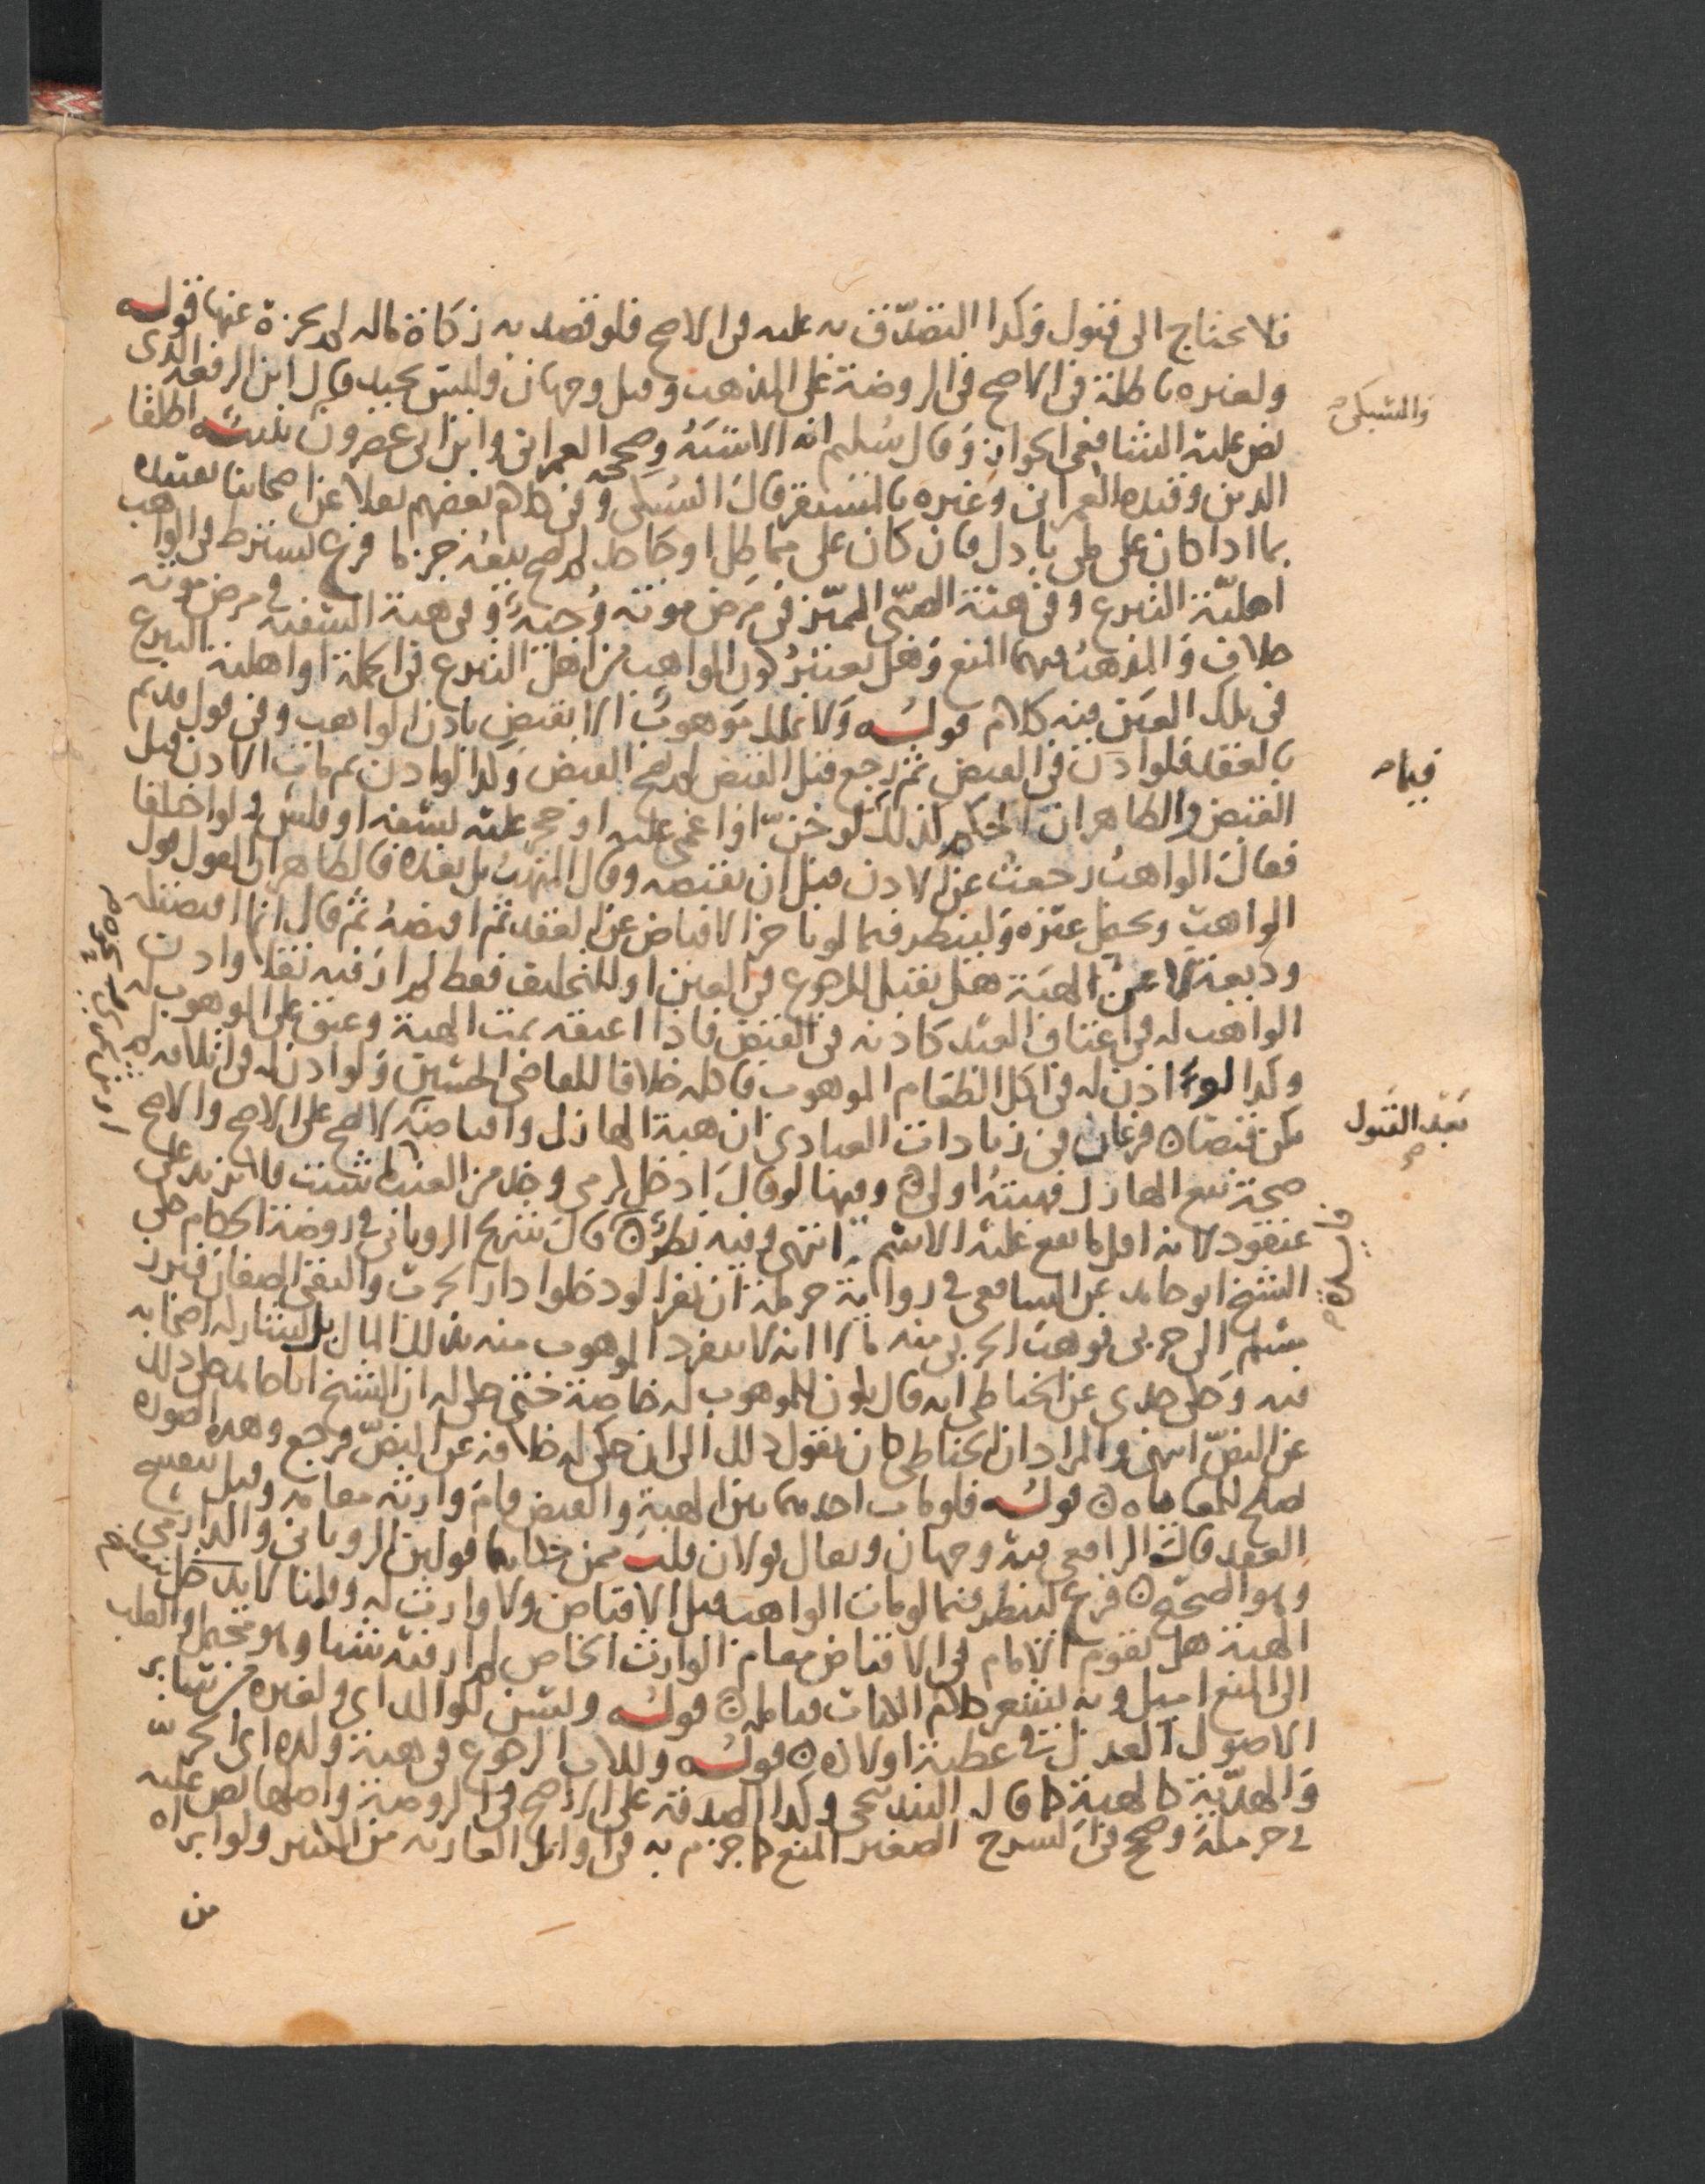 فلا يحتاج الى قبول وكذا التصدق به عليه في الاصح فلو قصد به زكاة ماله لم يجزه عنها قوله
ولغيره باطلة في الاصح في الروضة على المذهب وقيل وجهان وليس بجيد قال ابن الرفعة الذي
نص عليه الشافعي الجواز وقال سليم انه الاشبه وصححه العمراني وابن ابي عصرون تنبيه اطلقا
الدين وقيده العمراني وغيره بالمستقر قال السبكي وفي كلام بعضهم نقلا عن اصحابنا تقييده
بما اذا كان على ملي باذل فان كان على مماطل او جاحد لم يصح بيعه جزما فرع يشترط في الواهب
اهلية التبرع وفي هبة الصبي المميز في مرض موته وجه وفي هبة السفيه في مرض موته
خلاف والمذهب فيهما المنع وهل يعتبر كون الواهب من اهل التبرع في الجملة او اهلية التبرع
في تلك العين فيه كلام قوله ولا يملك موهوب الا بقبض باذن الواهب وفي قول قديم
بالعقد فلو اذن في القبض ثم رجع قبل القبض لم يصح القبض وكذا لو اذن ثم مات الاذن قبل
القبض والظاهر ان الحكم كذلك لو جن او اغمي عليه او حجر عليه بسفه او فلس ولو اختلفا
فقال الواهب رجعت عن الاذن قبل ان تقبضه وقال المتهب بل بعده فالظاهر ان القول قول
الواهب ويحتمل غيره ولينظر فيما لو تاخر الاقباض عن العقد ثم اقبضه ثم قال انما اقبضتكه
وديعة لا عن الهبة هل يقبل للرجوع في العين او للتحليف فقط لم ار فيه نقلا واذن
الواهب له في اعتاق العبد كاذنه في القبض فاذا اعتقه تمت الهبة وعتق على الموهوب له
وكذا لو اذن له في اكل الطعام الموهوب فاكله خلافا للقاضي الحسين ولو اذن له في اتلافه لم
يكن قبضا فرعان في زيادات العبادي ان هبة الهازل واقباضه لا تصح على الاصح والاصح
صحة بيع الهازل فهبته اولى وفيها لو قال ادخل كرمي وخذ من العنب ما شئت فلا تزيد على
عنقود لانه اقل ما يقع عليه الاسم انتهى وفيه نظر قال شريح الروياني في روضة الحكام حكى
الشيخ ابو حامد عن الشافعي في رواية حرملة ان نفرا لو دخلوا دار الحرب والتقى الصفان فبرز
مسلم الى حربي فوهب الحربي منه مالا انه لا ينفرد الموهوب منه بذلك المال بل يشاركه اصحابه
فيه وحكى جدي عن الحناطي انه قال يكون للموهوب له خاصة حتى حكى له ان الشيخ ابا حامد حكى ذلك
عن النص انتهى والمراد ان الحناطي كان يقول ذلك الى ان حكي له خلافه عن النص فرجع وهذه الصورة
تصلح للمعاياه قوله فلو مات احدهما بين الهبة والقبض قام وارثه مقامه وقيل ينفسخ
العقد قال الرافعي فيه وجهان ويقال قولان قلت ممن حكاهما قولين الروياني والدارمي
وهو الصحيح فرع لينظر فيما لو مات الواهب قبل الاقباض ولا وارث له وقلنا لا يبطل
الهبة هل يقوم الامام في الاقباض مقام الوارث الخاص لم ار فيه شيا وهو محتمل والقلب
الى المنع اميل وبه يشعر كلام الكتاب فتامله قوله ويسن للوالد اي ولغيره من سائر
الاصول العدل في عطية اولاده قوله وللاب الرجوع في هبة ولده اي الحر
والهدية كالهبة كما قاله البندنيجي وكذا الصدقة على الاصح في الروضة واصلها نص عليه
في حرملة وصحح في الشرح الصغير المنع كما جزم به في اوائل العارية من الكبير ولو ابراه
من
والسبكي
فيهما
بعد القبول